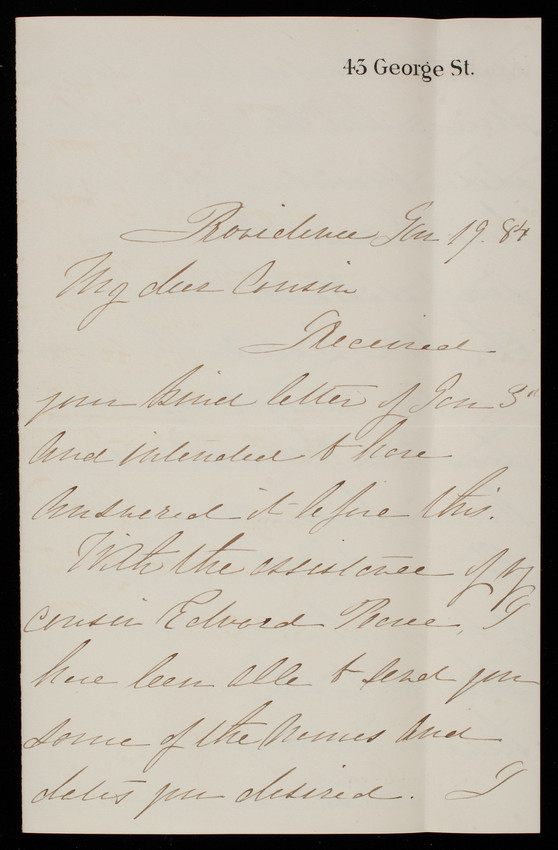 43 George St.
Providence Jan 19. 84
My dear Cousin
I Received
your kind letter of Jan 3d
and intended to have
answered it before this.
With the assistance of my
cousin Edward I
have been able to send you
some of the names and
dates you desired. I